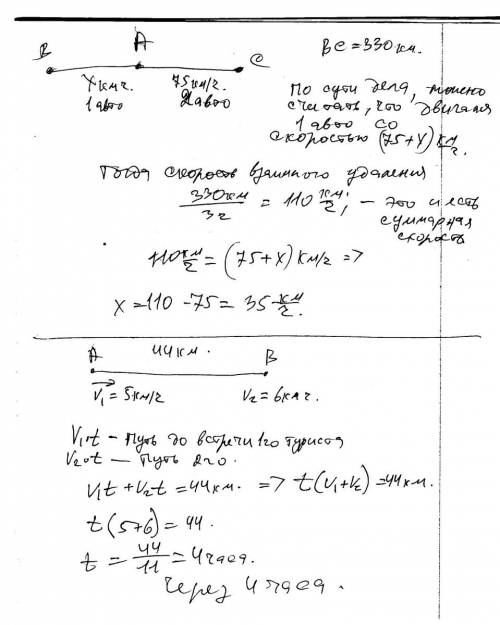 A
B
C
BC = 330 км.
X км ч.
75 км/г.
1 авто
2 авто
По сути дела, можно
считать, что двигался
1 авто со
скоростью (75+X) км/г.
Тогда скорость взаимного удаления
330 км / 3г = 110 км/г, – это и есть
суммарная
скорость
110 км/г = (75+X) км/г =>
X = 110 - 75 = 35 км/г.
A 44 км. B
V₁ = 5 км/г V₂ = 6 км г.
V₁·t – Путь до встречи 1го туриста
V₂·t – Путь 2го.
V₁t + V₂t = 44 км. => t(V₁+V₂) = 44 км.
t(5+6) = 44.
t = 44/11 = 4 часа.
Через 4 часа.